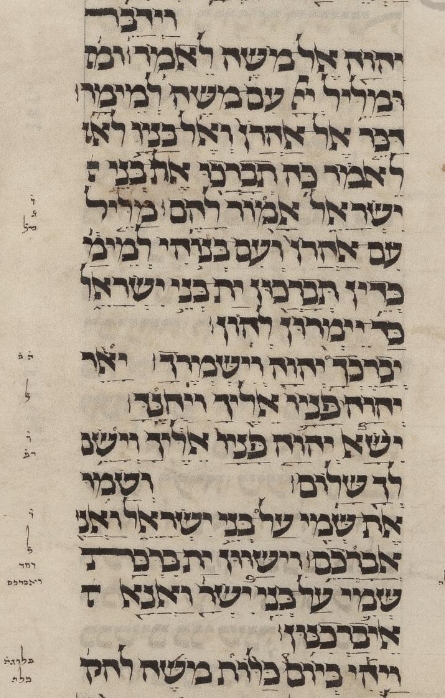 וידבר
יהוה אל משה לאמר׃ ומ
ומליל יי עם משה למימר
דבר אל אהרן ואל בניו לא
לאמר כה תברכו את בני
ישראל אמור להם׃ מליל
עם אהרן ועם בנוהי למימ
כדין תברכון ית בני ישראל
כד יימרון להון׃
יברכך יהוה וישמרך׃ יאר
יהוה פניו אליך ויחנך׃
ישא יהוה פניו אליך וישם
לך שלום׃ ושמו
את שמי על בני ישראל ואני
אברכם׃ וישוון ית ברכת
שמי על בני ישר ואנא
איברכינון׃
ויהי ביום כלות משה להק